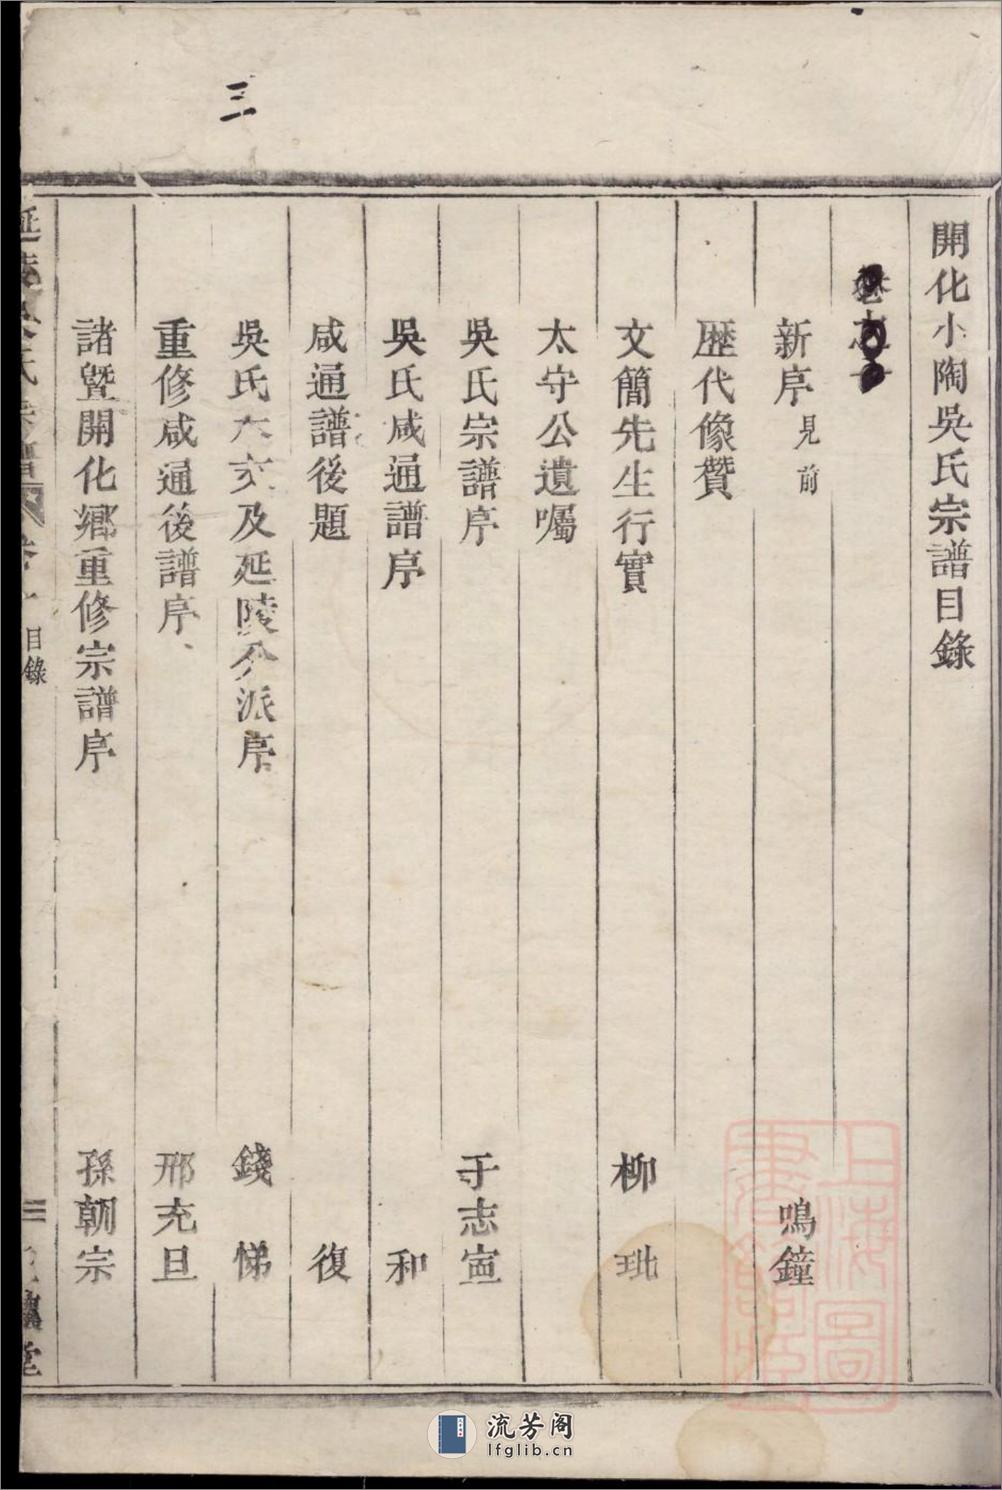 三
開化小陶吳氏宗譜目錄
新序見前 鳴鐘
歷代像贊
文簡先生行實 柳玭
太守公遺囑
吳氏宗譜序 于志寍
吳氏咸通譜序 和
咸通譜後題 復
吳氏六支及延陵分派序 錢悌
重修咸通後譜序 邢充且
諸暨開化鄉重修宗譜序 孫朝宗
目錄
上海圖書館藏
流芳阁
lfglib.cn